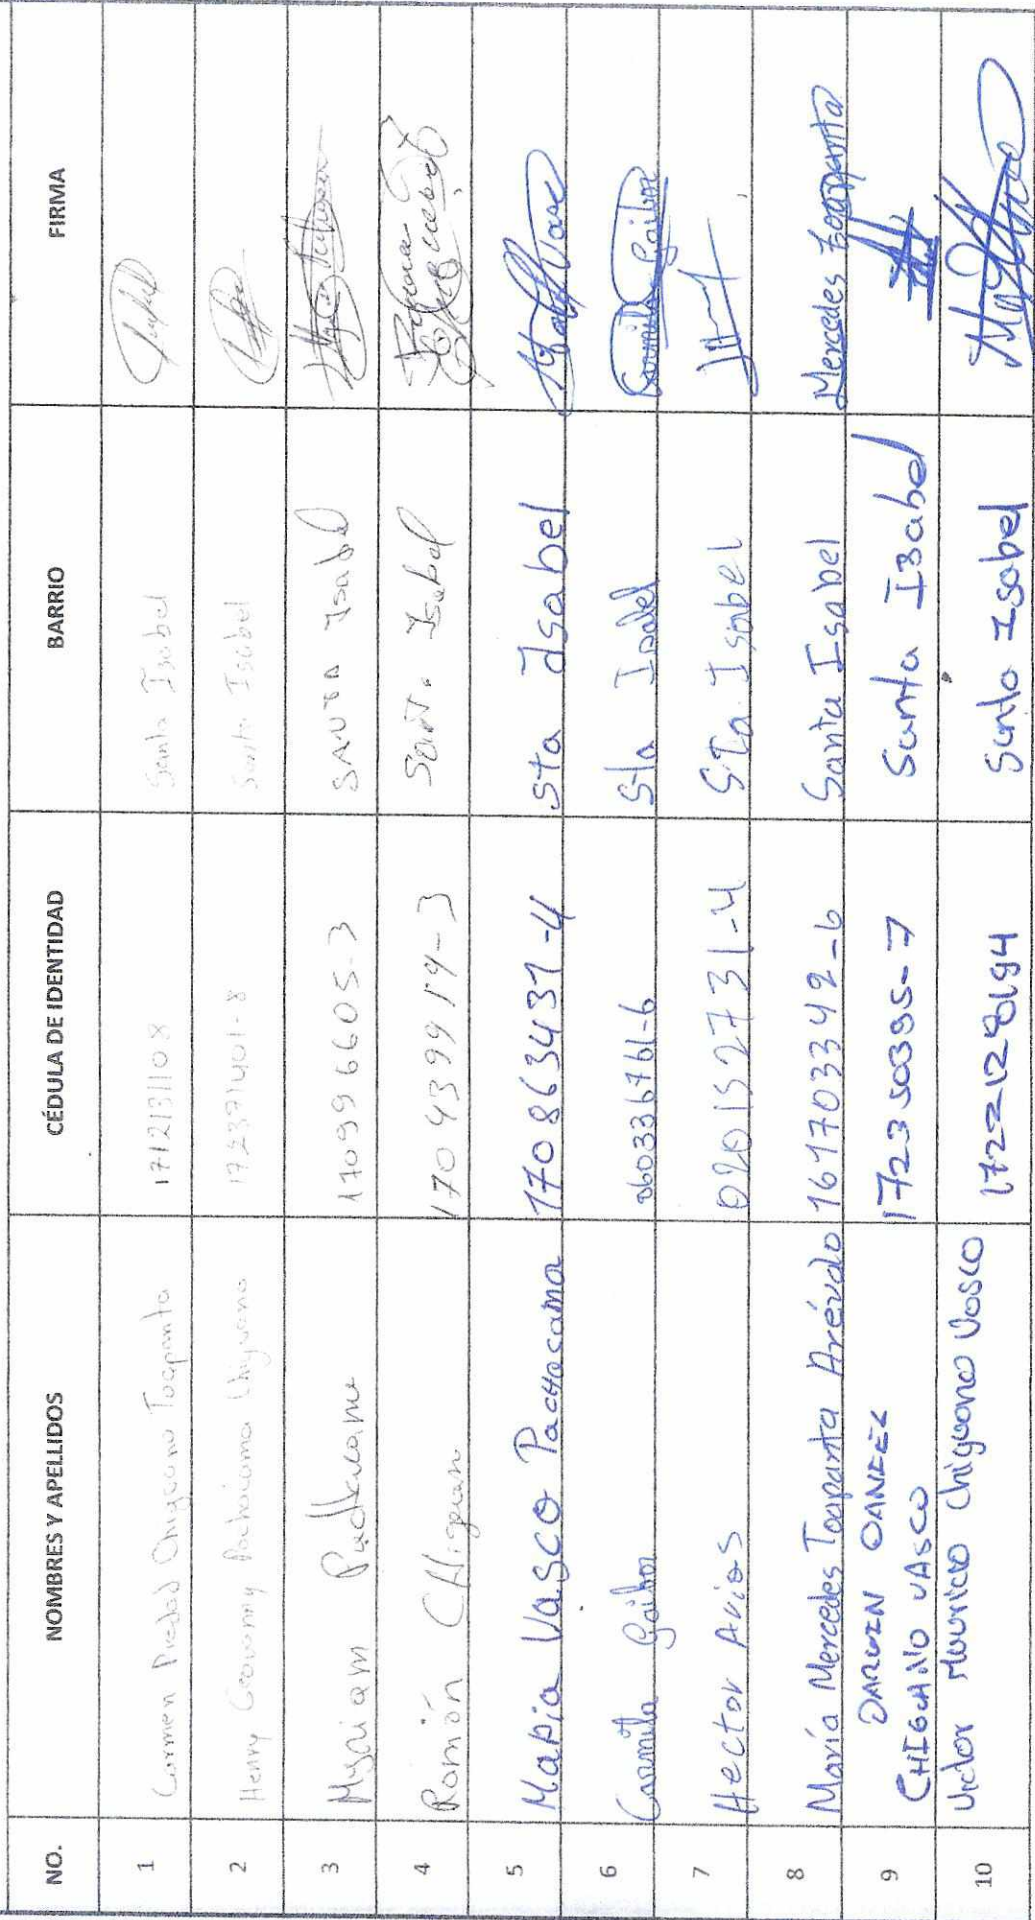 NO. NOMBRES Y APELLIDOS CÉDULA DE IDENTIDAD BARRIO FIRMA
1 Carmen Piedad Chiguano Toapanta 1712131108 Santa Isabel
2 Henry Geovanny Pachacama Chiguano 172391401-8 Santa Isabel
3 Myriam Pachacama 170996605-3 SANTA Isabel
4 Román 170439919-3 Sant. Isabel
5 María Vasco Pachacama 170863437-4 Sta Isabel
6 Carmita Gaibor 060336761-6 Sta Isabel Carmita Gaibor
7 Hector Arias 020152731-4 Sta. Isabel
8 María Mercedes Toapanta Arévalo 161703342-6 Santa Isabel Mercedes Toapanta
9 DARWIN DANIEL
CHIGUANO VASCO 172350395-7 Santa Isabel
10 Victor Mauricio Chiguano Vasco 1722128194 Santa Isabel